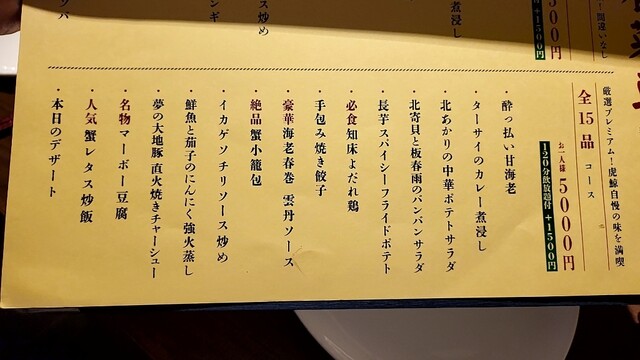 厳選プレミアム！虎鯨自慢の味を満喫
全15品 コース
お一人様 5000円
120分飲放題付 +1500円
・酔っ払い甘海老
・ターサイのカレー煮浸し
・北あかりの中華ポテトサラダ
・北寄貝と板春雨のバンバンサラダ
・長芋スパイシーフライドポテト
・必食 知床よだれ鶏
・手包み焼き餃子
・豪華 海老春巻 雲丹ソース
・絶品 蟹小籠包
・イカゲソチリソース炒め
・鮮魚と茄子のにんにく強火蒸し
・夢の大地豚 直火焼きチャーシュー
・名物 マーボー豆腐
・人気 蟹レタス炒飯
・本日のデザート
間違いなし
500円
+1500円
煮浸し
ス炒め